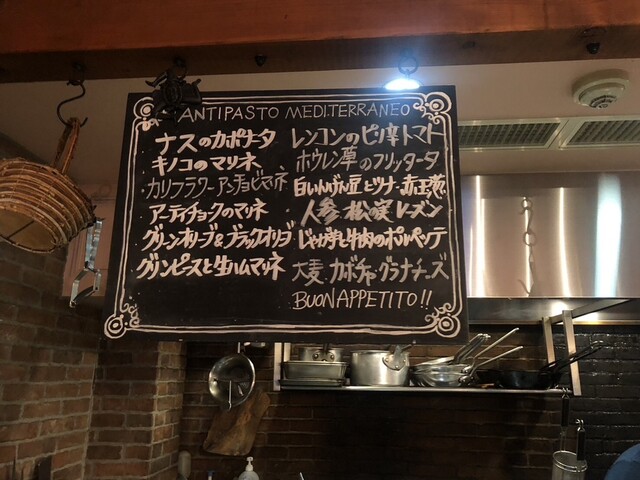 ANTIPASTO MEDITERRANEO
ナスのカポナータ
キノコのマリネ
カリフラワーアンチョビマリネ
アーティチョークのマリネ
グリーンオリーブ&ブラックオリーブ
グリンピースと生ハムマリネ
レンコンのピリ辛トマト
ホウレン草のフリッタータ
白いんげん豆とツナ・赤玉葱
人参・松の実・レーズン
じゃが芋と牛肉のポルペッテ
大麦・カボチャ・グラナチーズ
BUON APPETITO!!